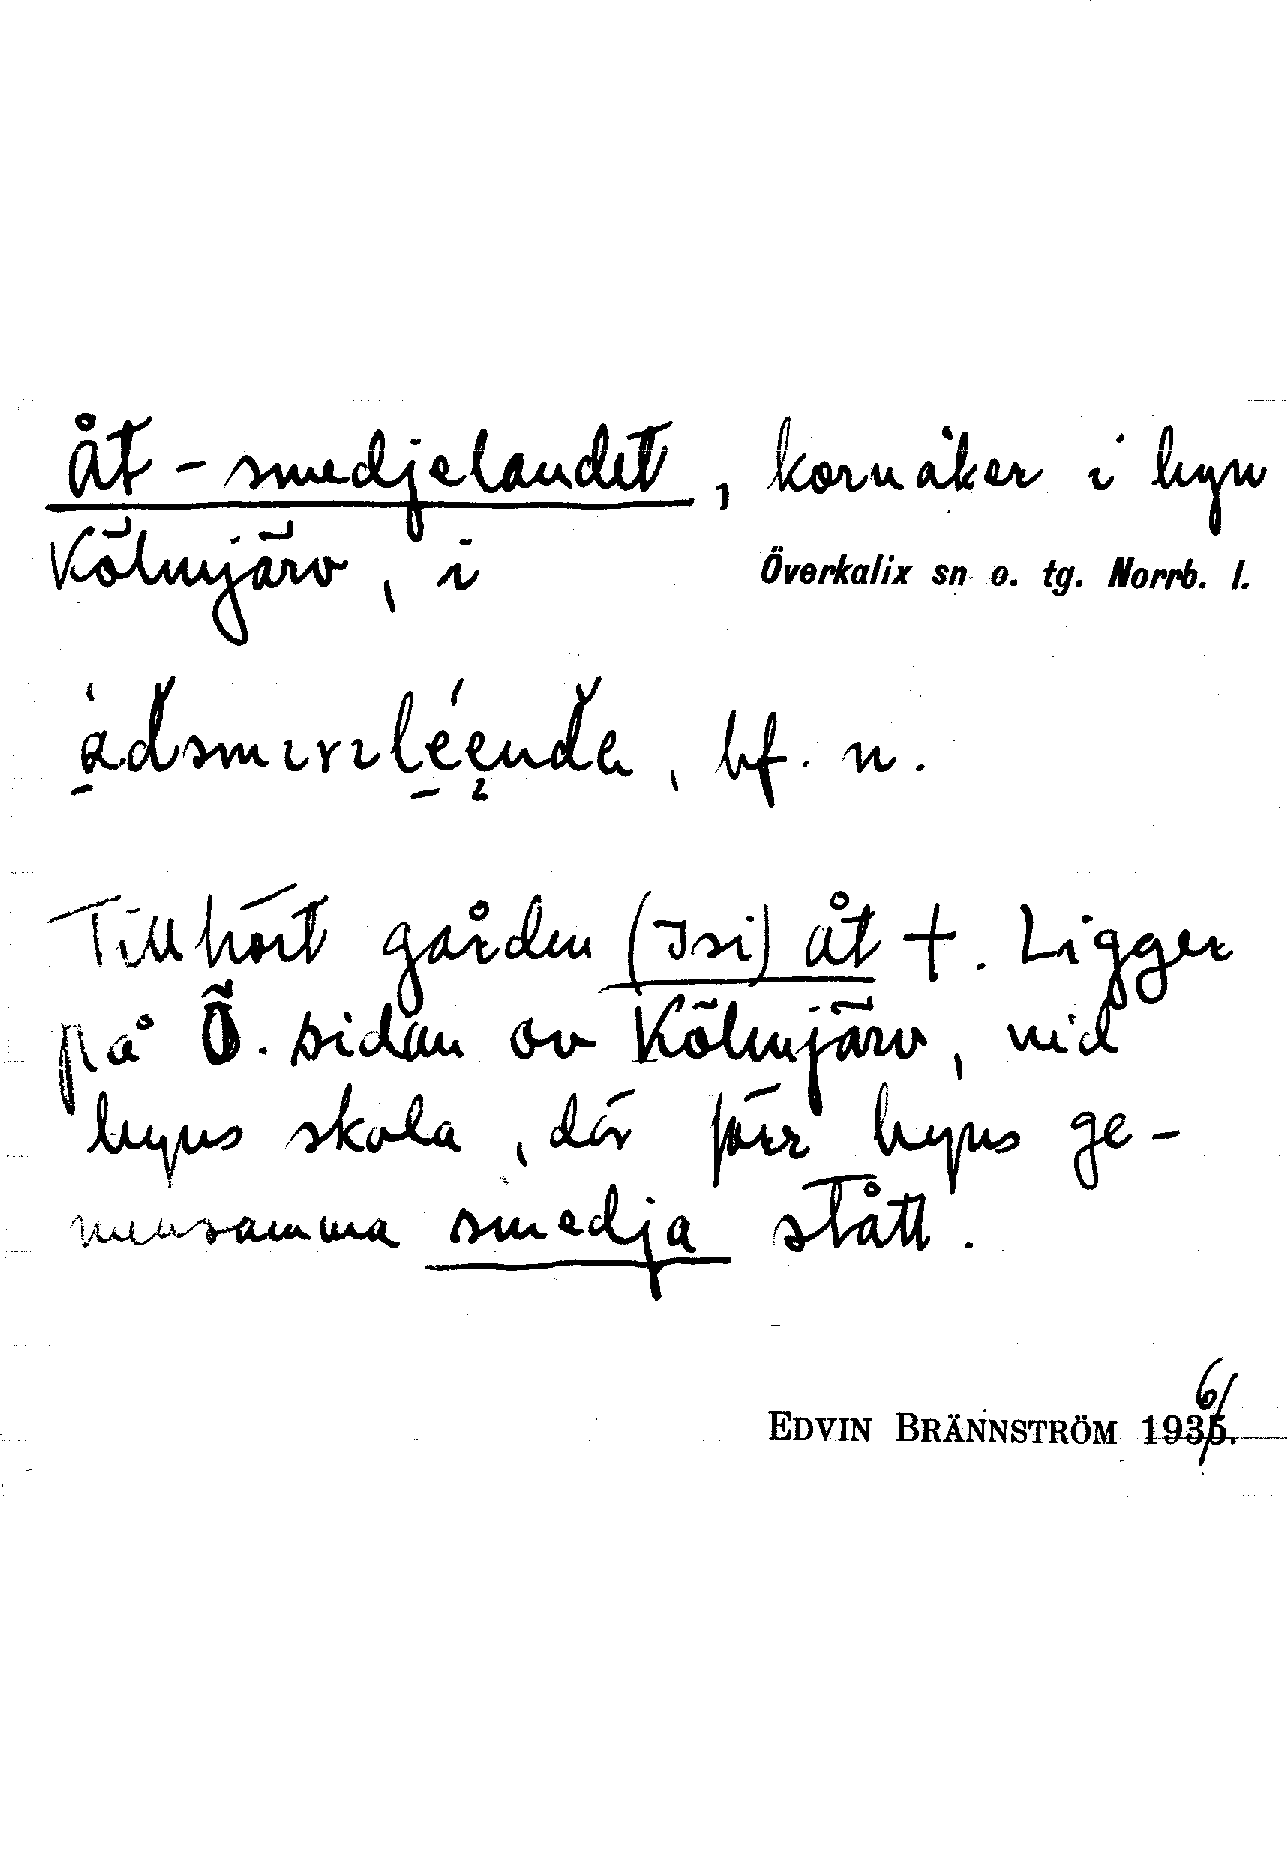 Åt-smedjelandet, kornåker i byn
Kölmjärv, i Överkalix sn o. tg. Norrb. l.
bf. n.
Tillhört gården (Isi) åt +. Ligger
på Ö. sidan av Kölmjärv, vid
byns skola, där förr byns ge-
mensamma smedja stått.
EDVIN BRÄNNSTRÖM 1936.